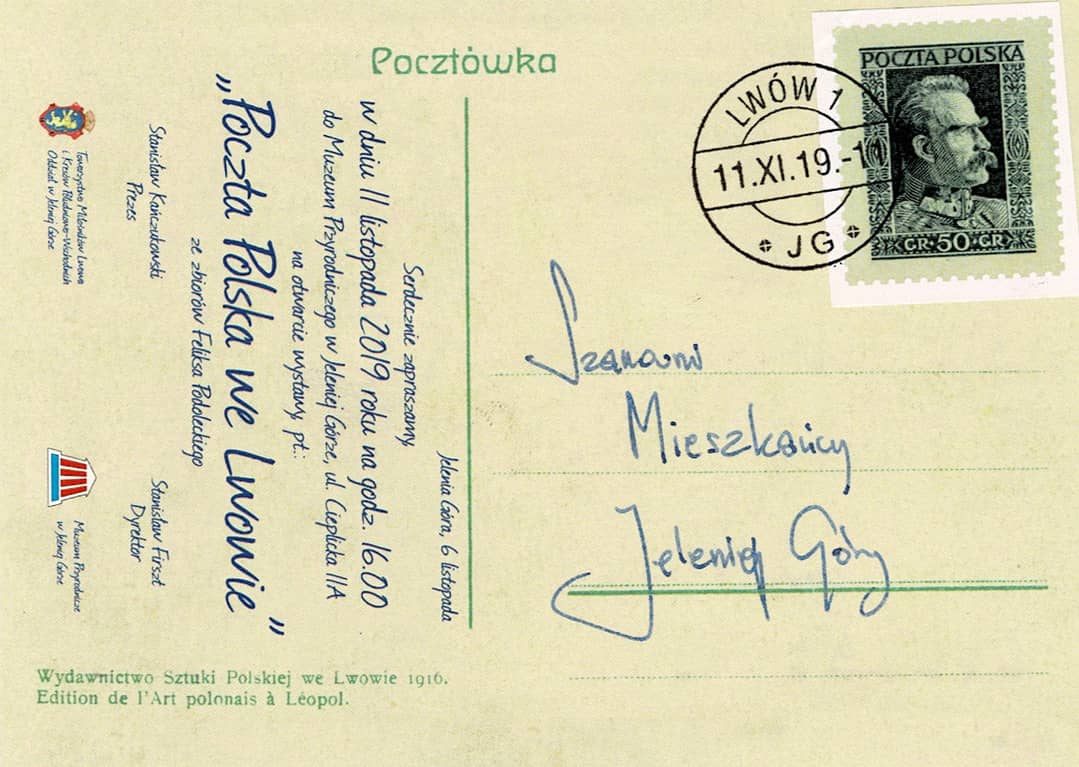 Pocztówka
Jelenia Góra, 6 listopada
Serdecznie zapraszamy
w dniu 11 listopada 2019 roku na godz. 16.00
do Muzeum Przyrodniczego w Jeleniej Górze, ul. Cieplicka 11A
na otwarcie wystawy, pt.:
„Poczta Polska we Lwowie”
ze zbiorów Feliksa Podoleckiego
Stanisław Kańczukowski
Prezes
Stanisław Firszt
Dyrektor
Towarzystwo Miłośników Lwowa
i Kresów Południowo-Wschodnich
Oddział w Jeleniej Górze
Muzeum Przyrodnicze
w Jeleniej Górze
Wydawnictwo Sztuki Polskiej we Lwowie 1916.
Edition de l'Art polonais à Léopol.
LWÓW 1
11.XI.19.-11
JG
POCZTA POLSKA
GR·50·GR
Szanowni
Mieszkańcy
Jeleniej Góry